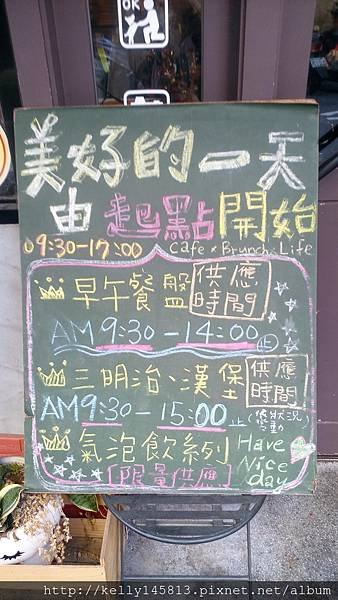 OK
美好的一天
由起點開始
09:30-17:00 Cafe × Brunch × Life
早午餐盤 供應時間
AM 9:30 - 14:00 止
三明治、漢堡 供應時間
AM 9:30 - 15:00 止 (依狀況
氣泡飲系列 Have
[限量供應] Nice
day
http://kelly145813.pixnet.net/album